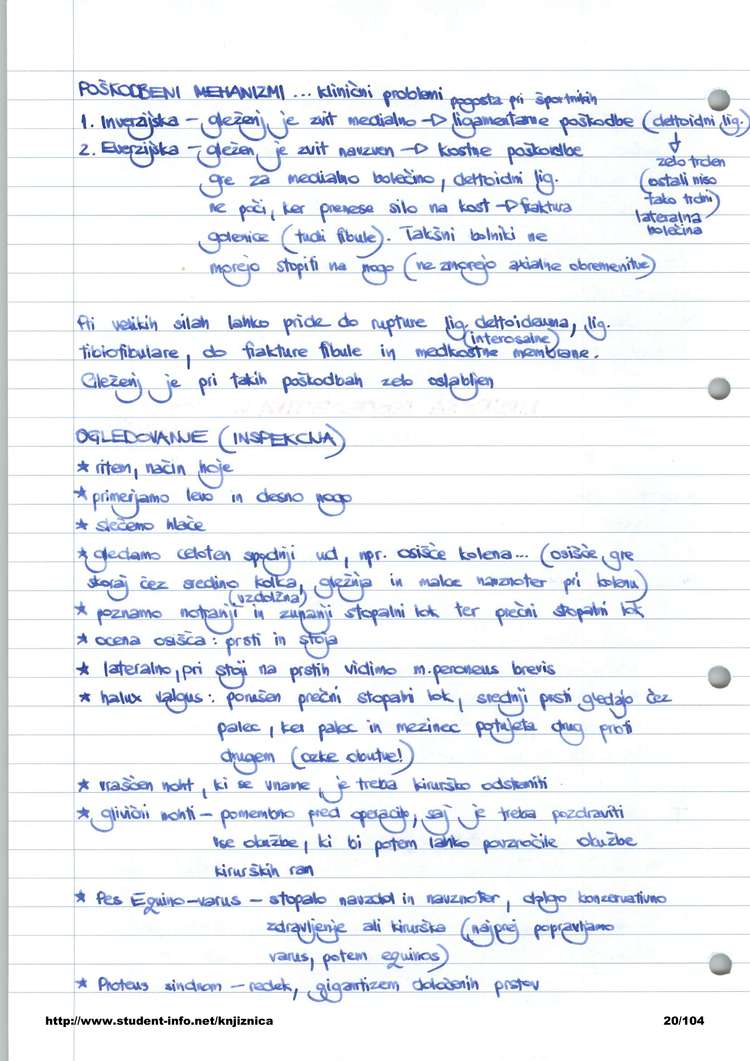 POŠKODBENI MEHANIZMI ... klinični problemi pogosta pri športnikih
1. Inverzijska - gleženj je zvit medialno → ligamentarne poškodbe (deltoidni lig.)
2. Everzijska - gležen je zvit navzven → kostne poškodbe
zelo trden
gre za medialno bolečino, deltoidni lig.
(ostali niso
tako trdni)
ne poči, ker prenese silo na kost → fraktura
lateralna
bolečina
golenice (tudi fibule). Takšni bolniki ne
morejo stopiti na nogo (ne zmorejo aksialne obremenitve)
Pri velikih silah lahko pride do rupture lig. deltoideuma, lig.
(interosalne)
tibiofibulare, do frakture fibule in medkostne membrane.
Gleženj je pri takih poškodbah zelo oslabljen
OGLEDOVANJE (INSPEKCIJA)
* ritem, način hoje
* primerjamo levo in desno nogo
* slečemo hlače
* gledamo celoten spodnji ud, npr. osišče kolena... (osišče, gre
skoraj čez sredino kolka, gležnja in malce navznoter pri kolenu)
(vzdolžna)
* poznamo notranji in zunanji stopalni lok ter prečni stopalni lok
* ocena osišča: prsti in stoja
* lateralno, pri stoji na prstih vidimo m. peroneus brevis
* halux valgus: porušen prečni stopalni lok, srednji prsti gledajo čez
palec, ker palec in mezinec potujeta drug proti
drugem (ozke obutve!)
* vraščen noht, ki se vname, je treba kirurško odstraniti
* glivični nohti - pomembno pred operacijo, saj je treba pozdraviti
vse okužbe, ki bi potem lahko povzročile okužbe
kirurških ran
* Pes Equino-varus - stopalo navzdol in navznoter, dolgo konzervativno
zdravljenje ali kirurška (najprej popravljamo
varus, potem equinos)
* Proteus sindrom - redek, gigantizem določenih prstov
http://www.student-info.net/knjiznica 20/104